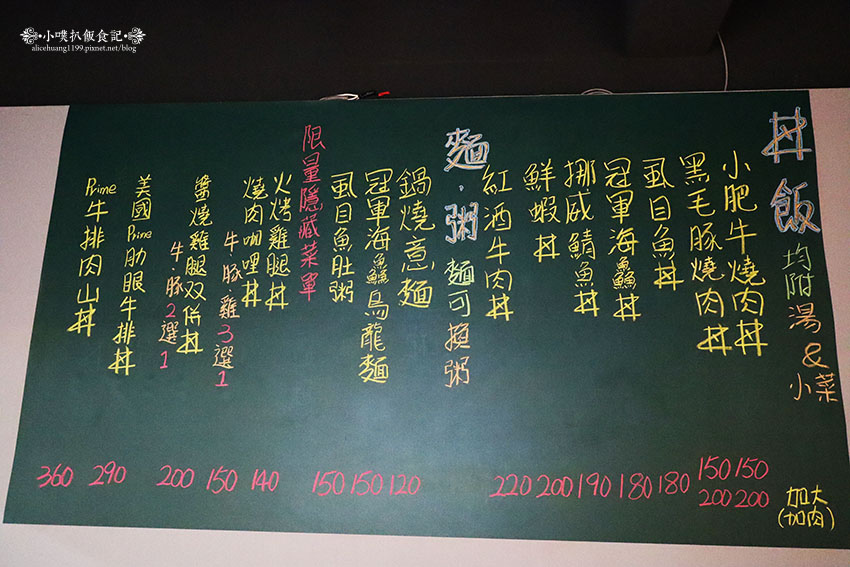 小噗扒飯食記
alicehuang1199.pixnet.net/blog
丼飯 均附湯&小菜
加大
(加肉)
小肥牛燒肉丼 150 200
黑毛豚燒肉丼 150 200
虱目魚丼 180
冠軍海鱺丼 180
挪威鯖魚丼 190
鮮蝦丼 200
紅酒牛肉丼 220
麵·粥 麵可換粥
鍋燒意麵 120
冠軍海鱺烏龍麵 150
虱目魚肚粥 150
限量隱藏菜單
火烤雞腿丼 140
燒肉咖哩丼 150
牛·豚·雞3選1
醬燒雞腿双併丼 200
牛·豚2選1
美國Prime肋眼牛排丼 290
Prime牛排肉山丼 360